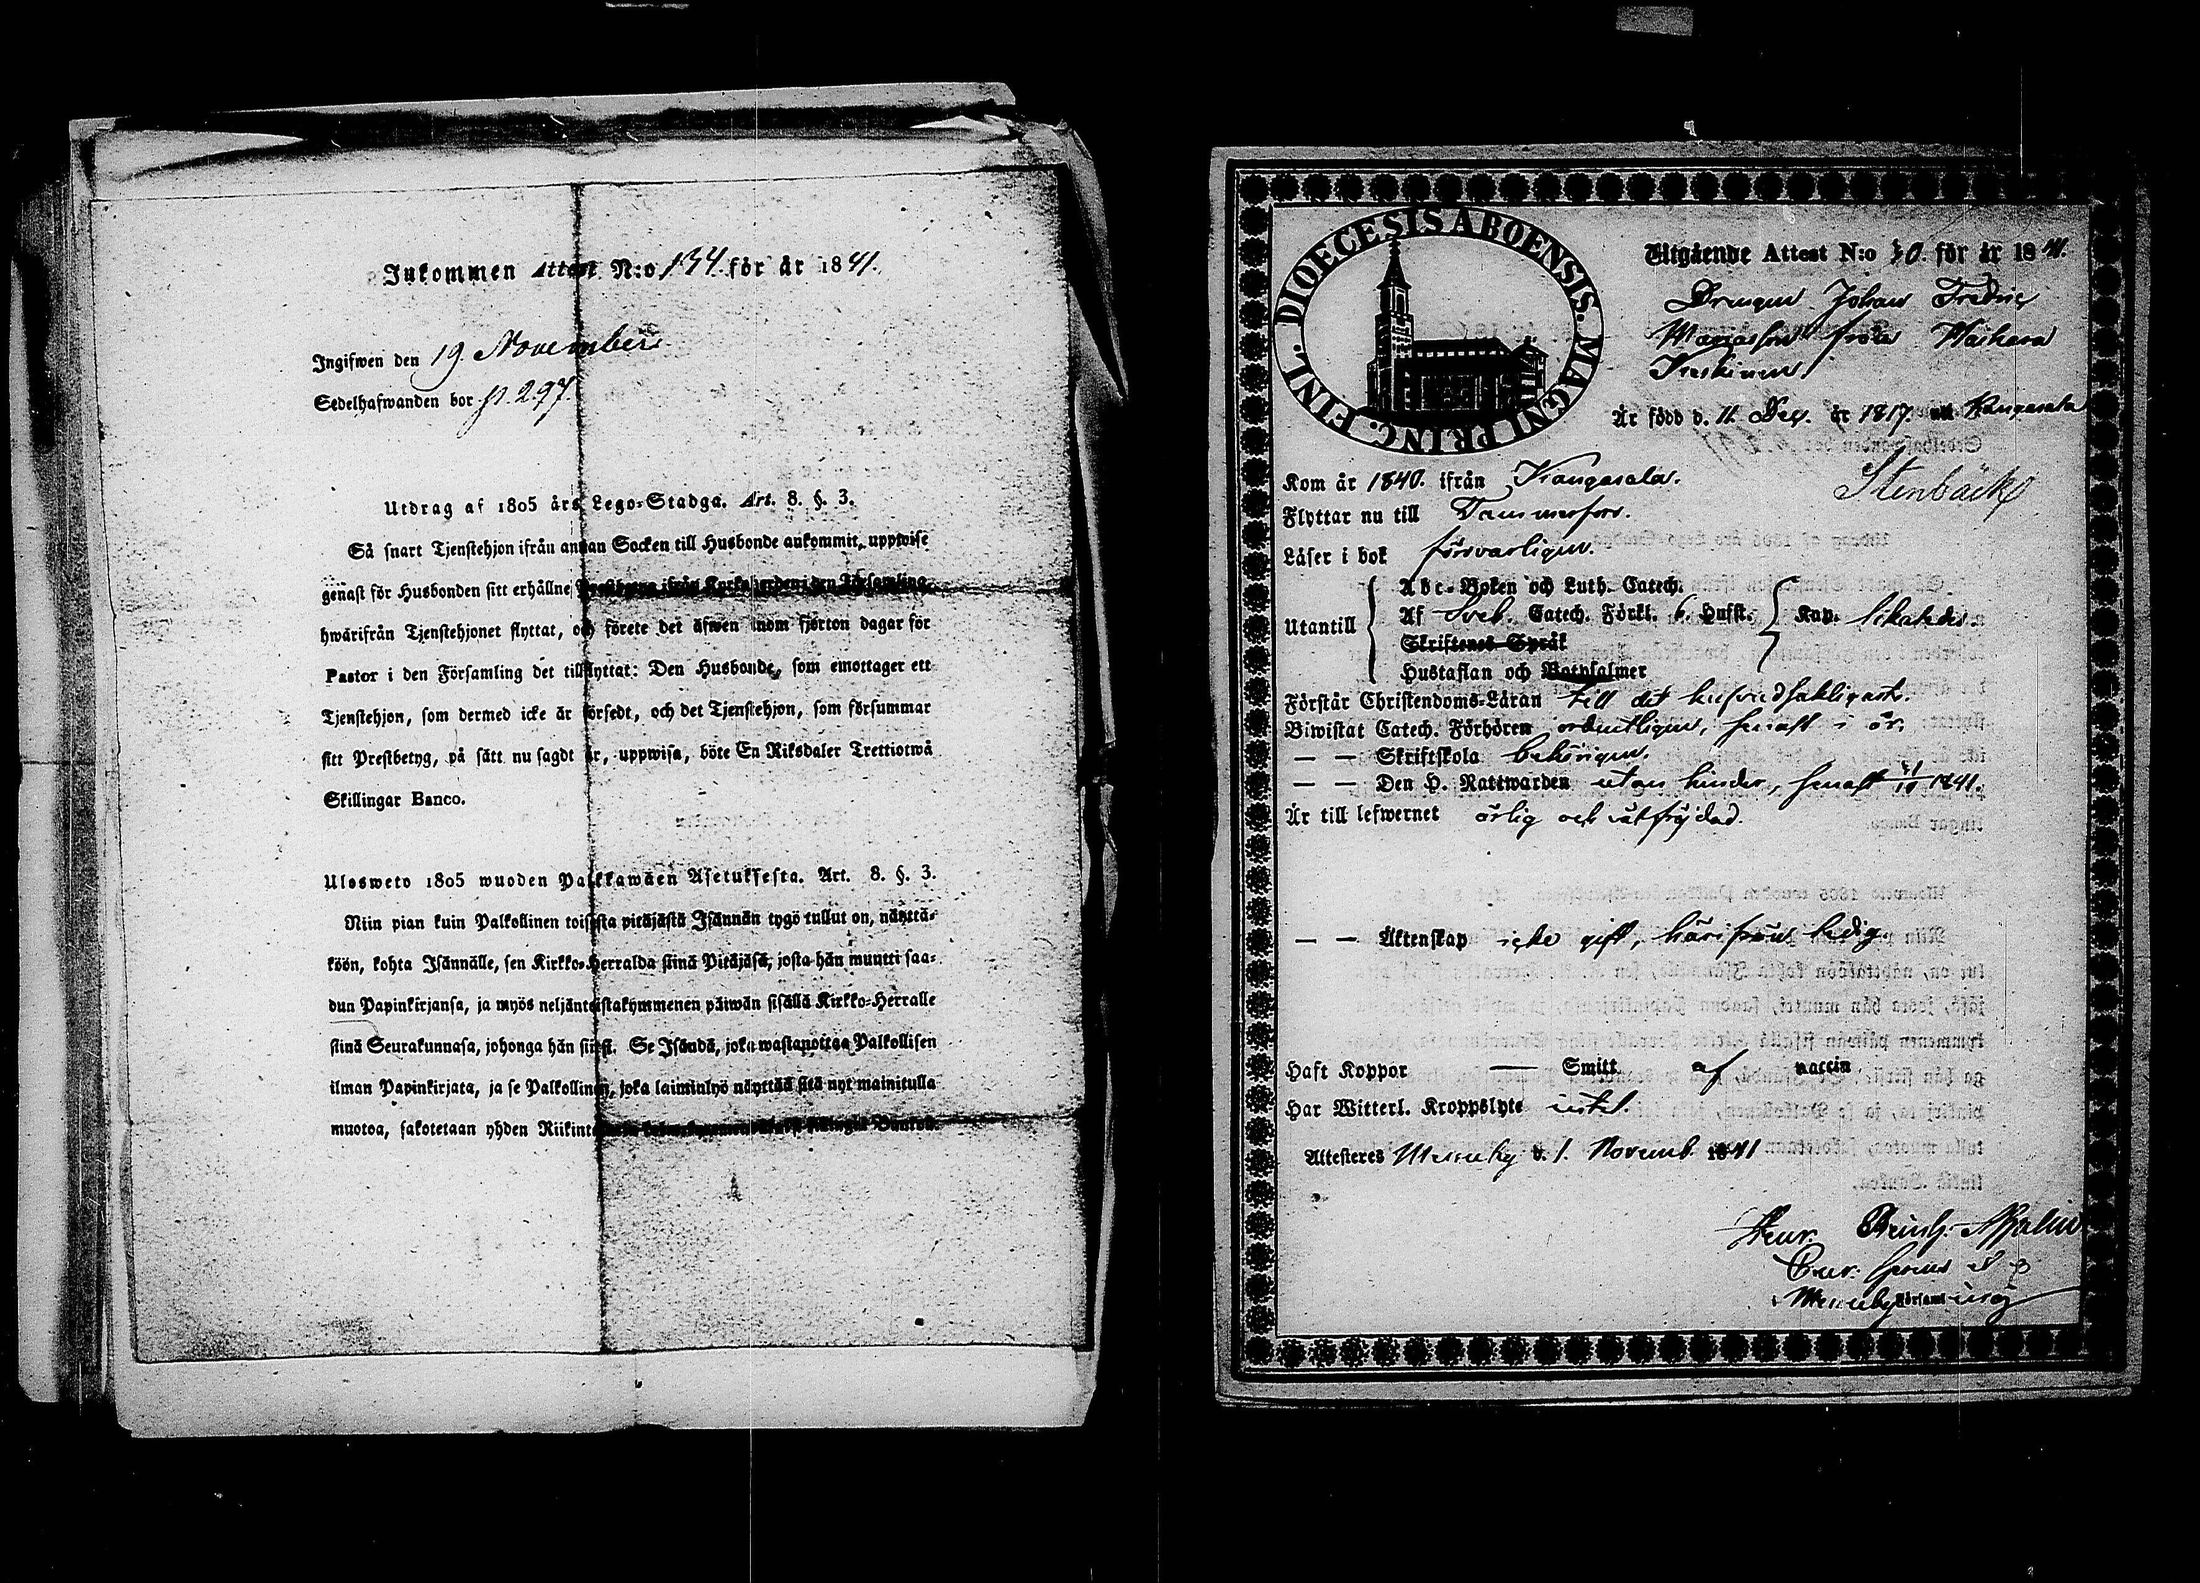 Inkommen Attest N:o 134. för år 1841.
Ingifwen den 19. November
Sedelhafwanden bor p. 297.
Utdrag af 1805 års Lego-Stadga. Art. 8. §. 3.
Så snart Tjenstehjon ifrån annan Socken till Husbonde ankommit, uppwise
genast för Husbonden sitt erhållne Prestbetyg ifrån Kyrkoherden i den Församling,
hwarifrån Tjenstehjonet flyttat, och förete det äfwen inom fjorton dagar för
Pastor i den Församling det tillflyttat: Den Husbonde, som emottager ett
Tjenstehjon, som dermed icke är försedt, och det Tjenstehjon, som försummar
sitt Prestbetyg, på sätt nu sagdt är, uppwisa, böte En Riksdaler Trettiotwå
Skillingar Banco.
Ulosweto 1805 wuoden Palkkawäen Asetuksesta. Art. 8. §. 3.
Niin pian kuin Palkollinen toisesta pitäjästä Isännän tygö tullut on, näyttä-
köön, kohta Isännälle, sen Kirkko-Herralda siinä Pitäjäsä, josta hän muutti saa-
dun Papinkirjansa, ja myös neljäntoistakymmenen päiwän sisällä Kirkko-Herralle
siinä Seurakunnasa, johonga hän siirsi. Se Isändä, joka wastanottaa Palkollisen
ilman Papinkirjata, ja se Palkollinen, joka laiminlyö näyttää sitä nyt mainitulla
muotoa, sakotetaan yhden
DIOECESIS ABOENSIS. MAGNI PRINC. FINL.
Utgående Attest N:o 30. för år 1841.
Drengen Johan Fredric
Mariasson från
Är född d. 11 Dec. år 1817. uti Kangasala
Stenbäck
Kom år 1840. ifrån Kangasala.
Flyttar nu till Tammerfors.
Läser i bok försvarligen.
Utantill
Abc-Boken och Luth. Catech.
Af Sveb. Catech. Förkl. 6. Hufst. Kap.
Skriftenes Språk
Hustaflan och Botpsalmer
Förstår Christendoms-Läran till det
Biwistat Catech. Förhören ordentligen, senast i år.
— — Skriftskola behörigen.
— — Den H. Nattwarden utan hinder, senast 1841.
Är till lefwernet ärlig och
— — Äktenskap icke gift, härifrån ledig.
Haft Koppor — Smitt af vaccin
Har Witterl. Kroppslyte intet.
Attesteres Messuky d. 1. Novemb. 1841
Henr. Reinh.
Messuby Församling